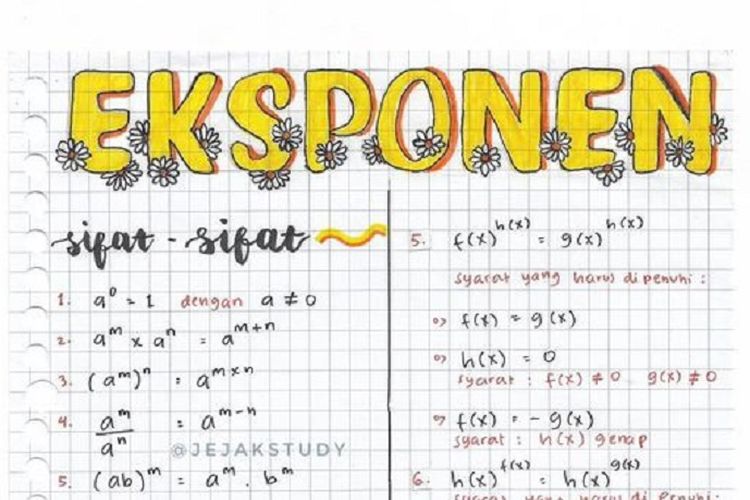 EKSPONEN
sifat - sifat
1. a⁰ = 1 dengan a ≠ 0
2. aᵐ x aⁿ = aᵐ⁺ⁿ
3. (aᵐ)ⁿ = aᵐˣⁿ
4. aᵐ/aⁿ = aᵐ⁻ⁿ
@JEJAKSTUDY
5. (ab)ᵐ = aᵐ . bᵐ
5. f(x)^h(x) = g(x)^h(x)
syarat yang harus dipenuhi :
=> f(x) = g(x)
=> h(x) = 0
syarat : f(x) ≠ 0 g(x) ≠ 0
=> f(x) = - g(x)
syarat : h(x) genap
6. h(x)^f(x) = h(x)^g(x)
syarat yang harus di penuhi: